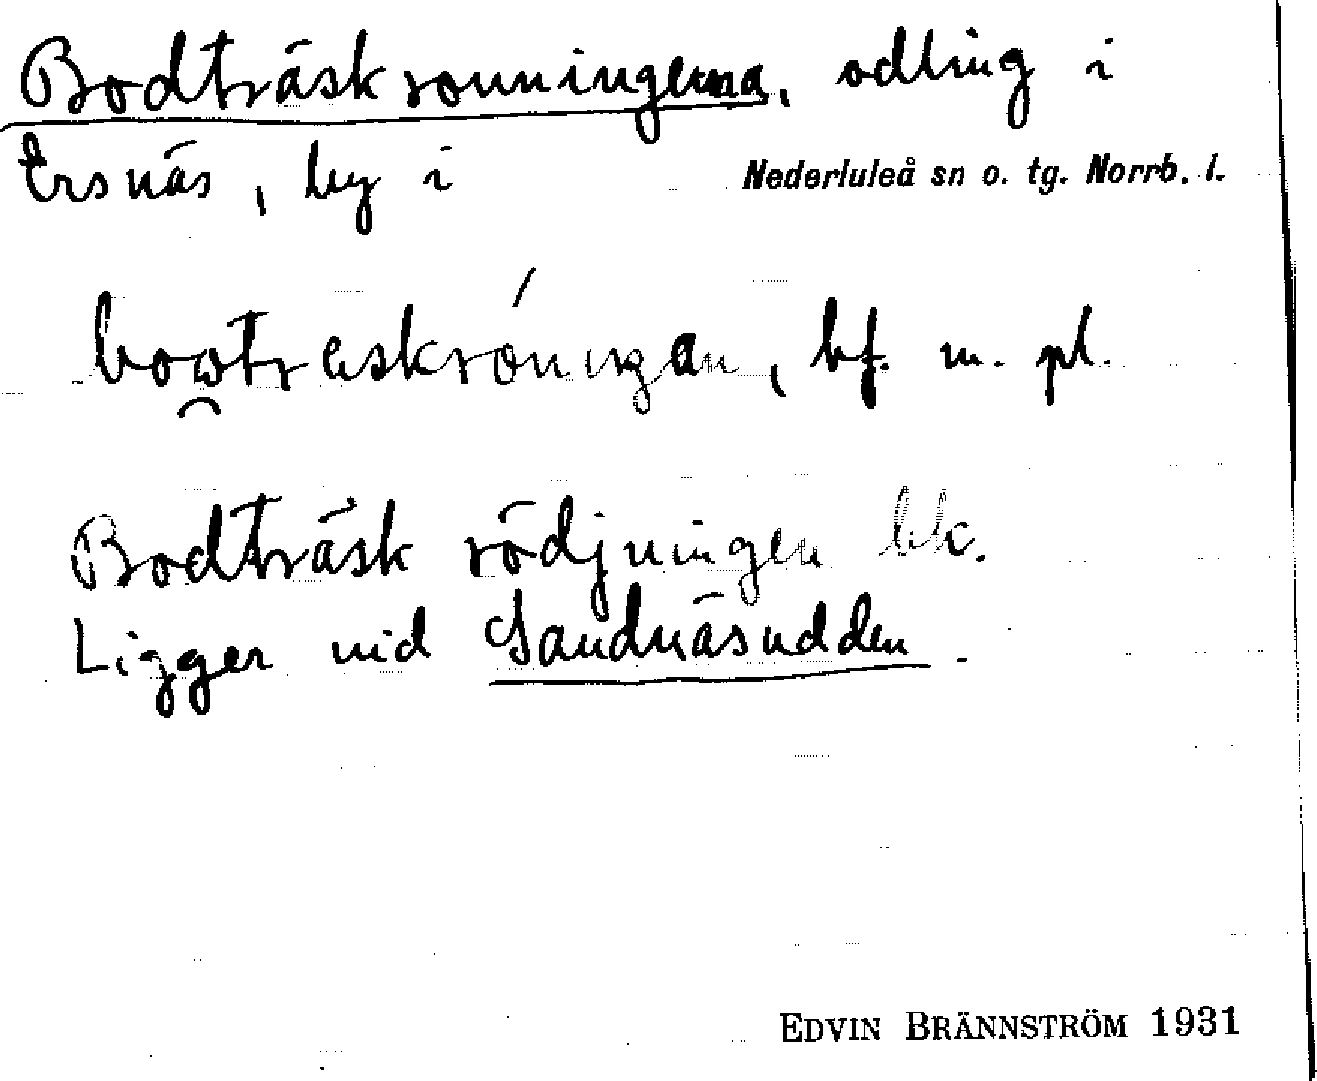 Bodträskronningerna, odling i
Ersnäs, by i Nederluleå sn o. tg. Norrb. l.
bf. m. pl.
Bodträsk rödjningen bk.
Ligger vid Sandnäsudden.
EDVIN BRÄNNSTRÖM 1931